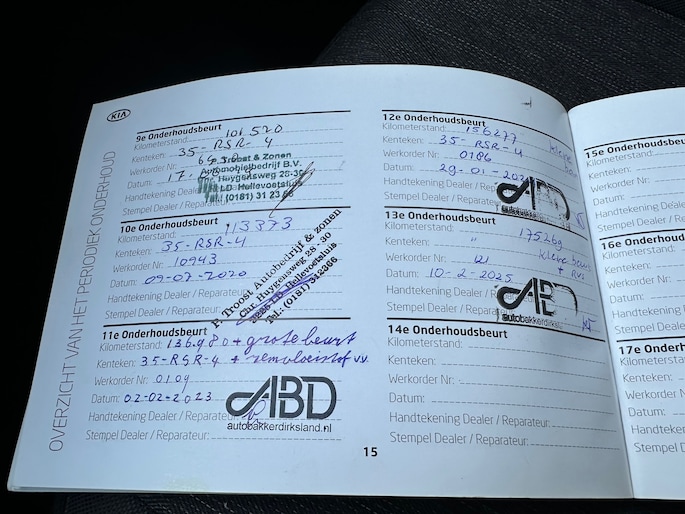 KIA
OVERZICHT VAN HET PERIODIEK ONDERHOUD
9e Onderhoudsbeurt
Kilometerstand: 101520
Kenteken: 35-RSR-4
Werkorder Nr:
Datum: 17.
Handtekening Dealer
Stempel Dealer /
Troost & Zonen
Automobiebedrijf B.V.
Huygensweg 28-30
LD Hellevoetsluis
Tel.: (0181) 31 23 66
10e Onderhoudsbeurt
Kilometerstand: 113373
Kenteken: 35-RSR-4
Werkorder Nr: 10943
Datum: 09-07-2020
Handtekening Dealer / Reparateur:
Stempel Dealer / Reparateur:
P. Troost Autobedrijf & zonen
Chr. Huygensweg 28 - 30
3225 LD Hellevoetsluis
Tel.: (0181) 312366
11e Onderhoudsbeurt
Kilometerstand: 136980 + grote beurt
Kenteken: 35-RSR-4 + remvloeistof v.v.
Werkorder Nr: 0109
Datum: 02-02-2023
Handtekening Dealer / Reparateur:
Stempel Dealer / Reparateur:
ABD
autobakkerdirksland.nl
12e Onderhoudsbeurt
Kilometerstand: 156277
Kenteken: 35-RSR-4 kleine
Werkorder Nr: 0186
Datum: 29-01-202
Handtekening Dealer /
Stempel Dealer / Reparateur:
ABD
13e Onderhoudsbeurt
Kilometerstand: 175269
Kenteken: " kleine beurt
Werkorder Nr: + RVS
Datum: 10-2-2025
Handtekening Dealer /
Stempel Dealer /
ABD
autobakkerdirksland.nl
14e Onderhoudsbeurt
Kilometerstand:
Kenteken:
Werkorder Nr:
Datum:
Handtekening Dealer / Reparateur:
Stempel Dealer / Reparateur:
15
15e Onderhoud
Kilometerstand:
Kenteken:
Werkorder Nr:
Datum:
Handtekening
Stempel Dealer
16e Onderhou
Kilometerstan
Kenteken:
Werkorder N
Datum:
Handtekenin
Stempel Dea
17e Onder
Kilometersta
Kenteken:
Werkorder
Datum:
Handteken
Stempel D